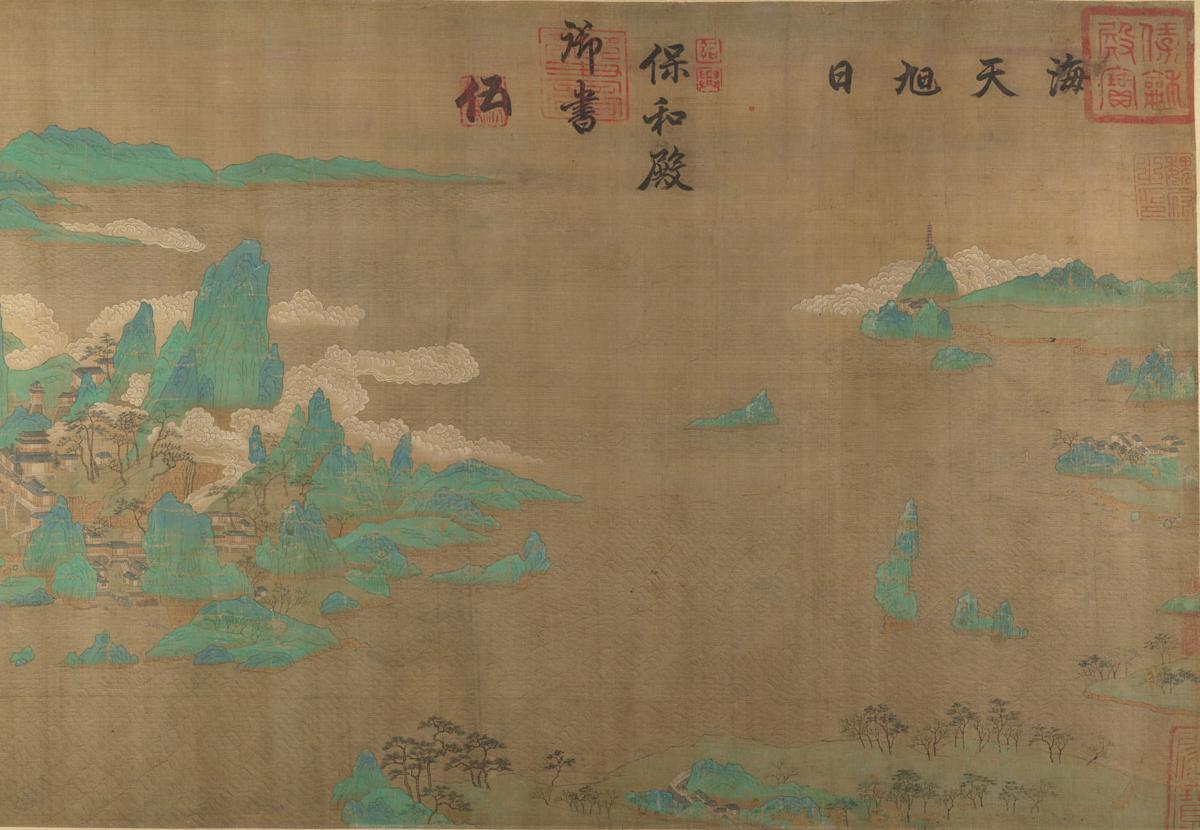 海天旭日
紹興
保和殿
御書
伍